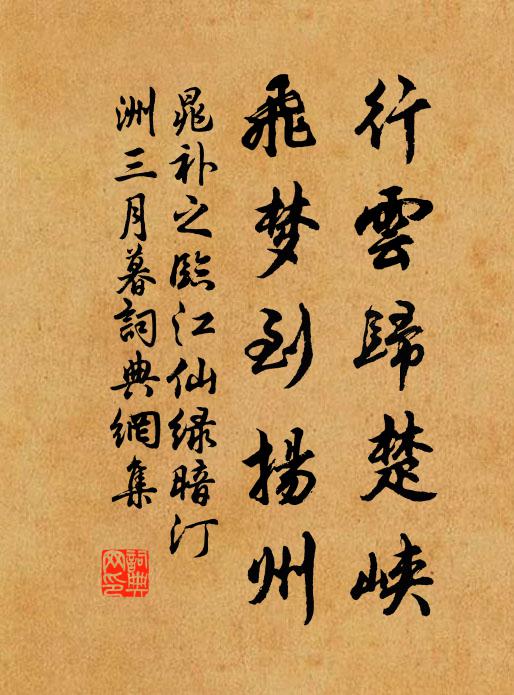 行雲歸楚峽
飛梦到揚州
晁补之臨江仙緑暗汀
洲三月暮詞典網集
詞典
网印